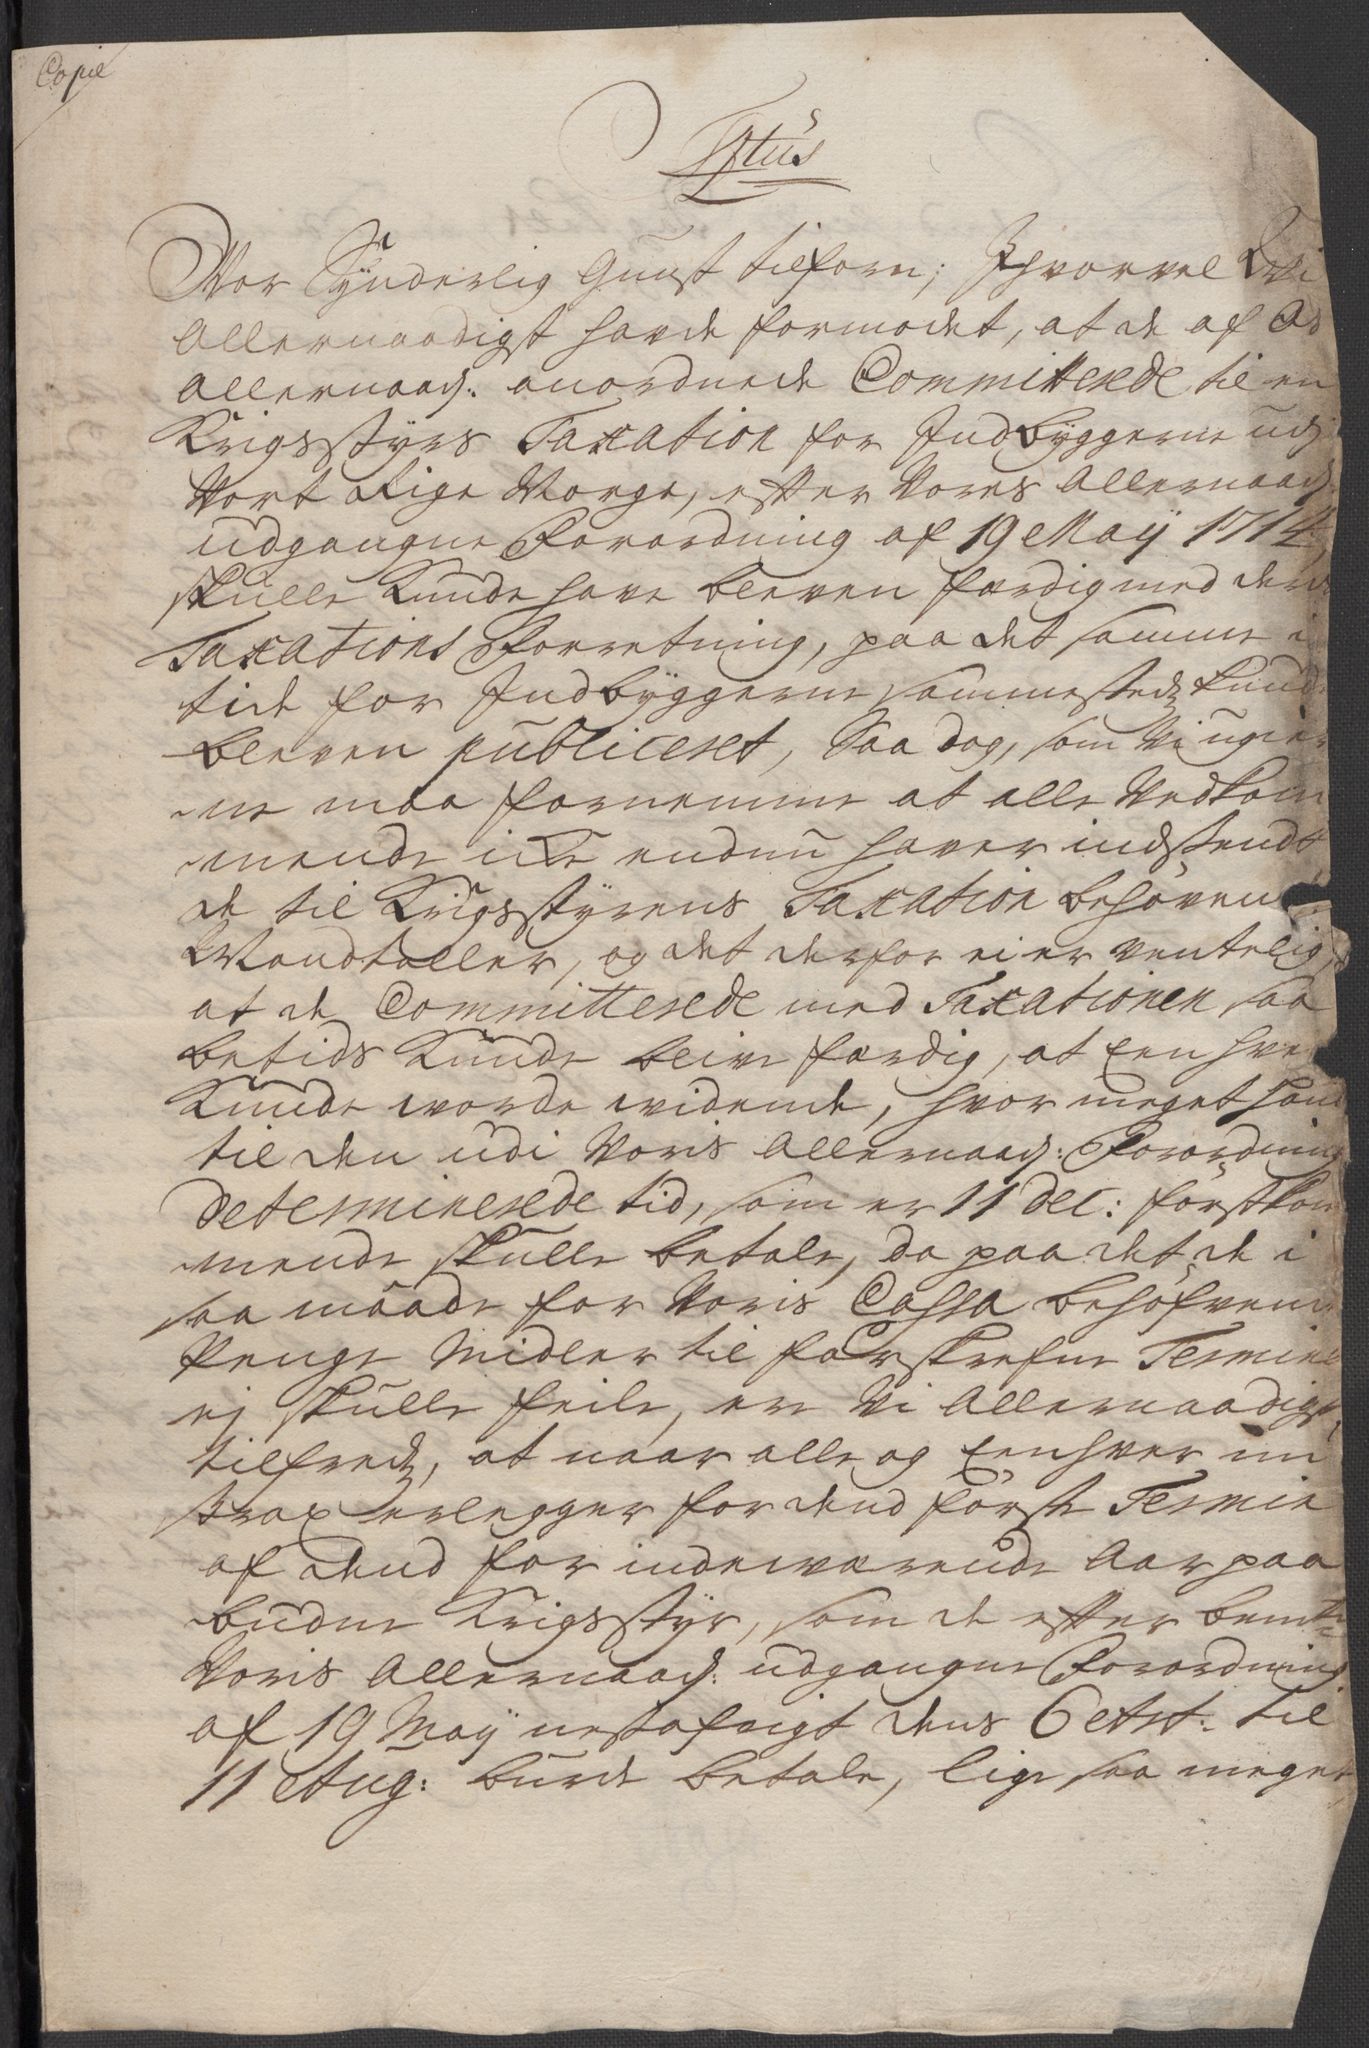 Copie
Tituls
Vor Synderlig Gunst tilforn; Ihvorvel Vi
Allernaadigst hafde formodet, at de af Os
Allernaad: anordnede Committerede til en
Krigsstyrs Taxation for Indbyggerne udj
Vort Rige Norge, efter Vores Allernaad:
udgangne Forordning af 19 Maij 1714,
skulle Kunde have bleven færdig med deris
Taxations Forretning, paa det samme i
tide for Indbyggerne sammestedz kunde
bleven publiceret, Saa dog, som Vi ugier
ne maa fornemme at alle Vedkom
mende icke endnu haver indsendt
de til Krigsstyrens Taxation behøvende
Mandtaller, og det derfor ei er ventelig,
at de Committerede med Taxationen saa
betids Kunde blive færdig, at Een hver
Kunde worde widende, hvor meget hand
til den udi Voris Allernaad: Forordning
determinerede tid, som er 11 Dec: førstkom
mende skulle betale, da paa det de i
saa maade for Voris Cassa behøfvende
Penge Midler til forskrefne Termin
ej skulle feile, ere Vi Allernaadigst
tilfredz, at naar alle og Eenhver nu
strax erlegger for dend første Termin
af dend for indeværende Aar paa
budne Krigsstyr, som de efter bemte
Voris Allernaad: udgangne Forordning
af 19 Maij nestafvigt dens 6 Art: til
11 Aug: burde betale, lige saa meget